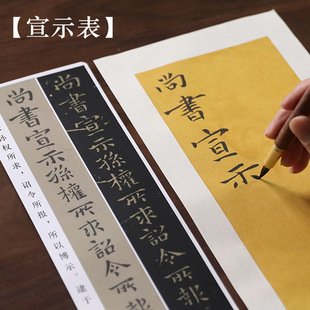 【宣示表】
尚書宣示
尚書宣示孫權所求詔令所報
尚書宣示孫權所求詔令所
孙权所求,诏令所报,所以博示。逮于